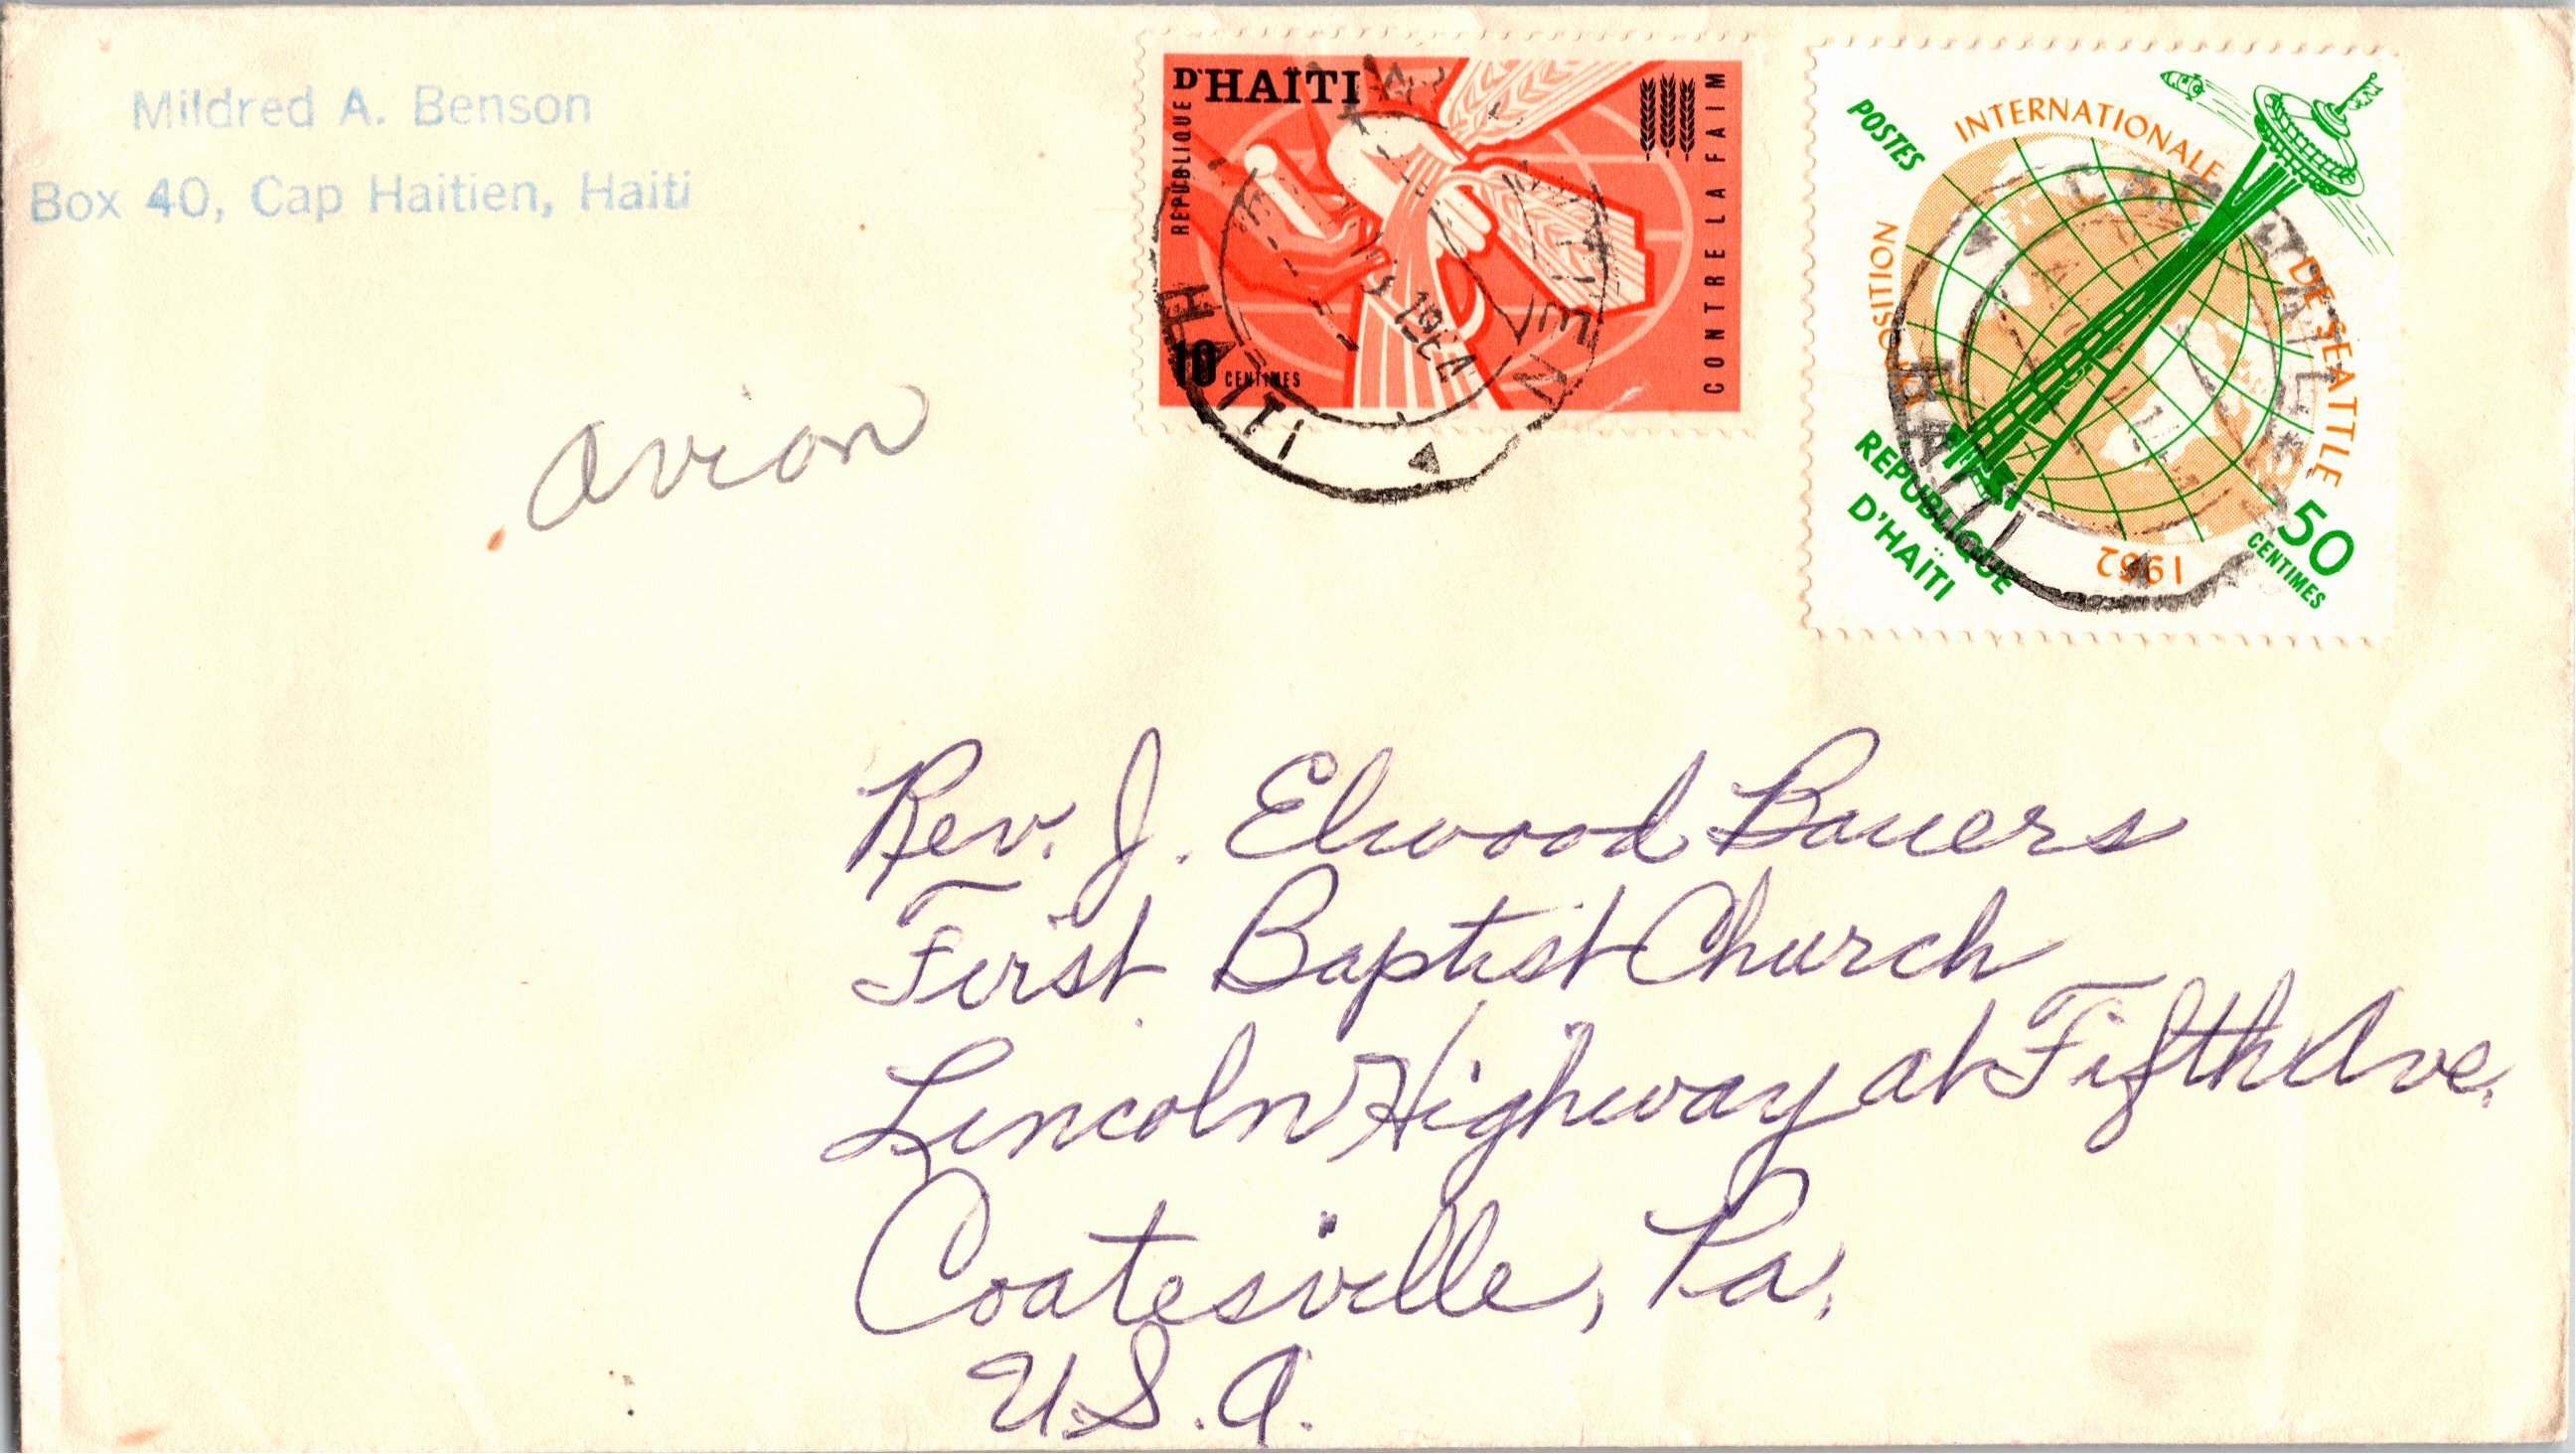 Mildred A. Benson
Box 40, Cap Haitien, Haiti
REPUBLIQUE
D'HAÏTI
CONTRE LA FAIM
10 CENTIMES
HAITI
POSTES
EXPOSITION INTERNATIONALE DE SEATTLE
1962
REPUBLIQUE
D'HAÏTI
50
CENTIMES
HAITI
avion
Rev. J. Elwood Bauers
First Baptist Church
Lincoln Highway at Fifth Ave.
Coatesville, Pa.
U.S.A.